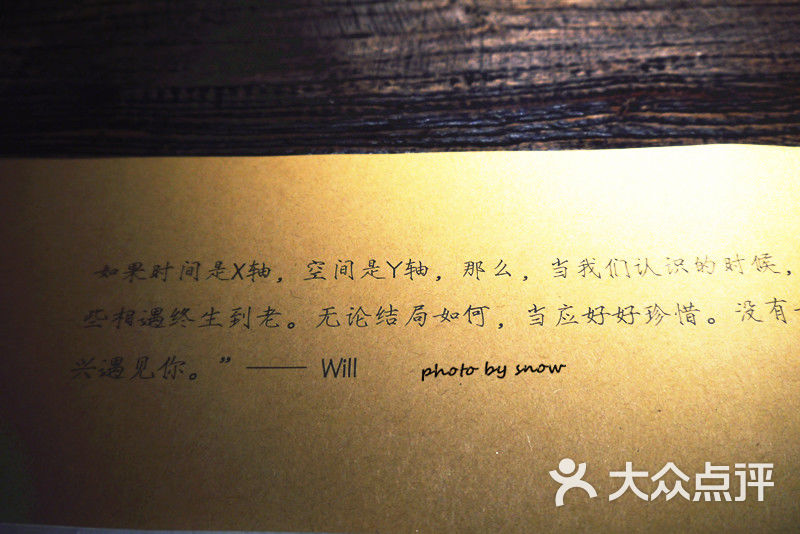 如果时间是X轴，空间是Y轴，那么，当我们认识的时候，
些相遇终生到老。无论结局如何，当应好好珍惜。没有
兴遇见你。”—— Will
photo by snow
大众点评